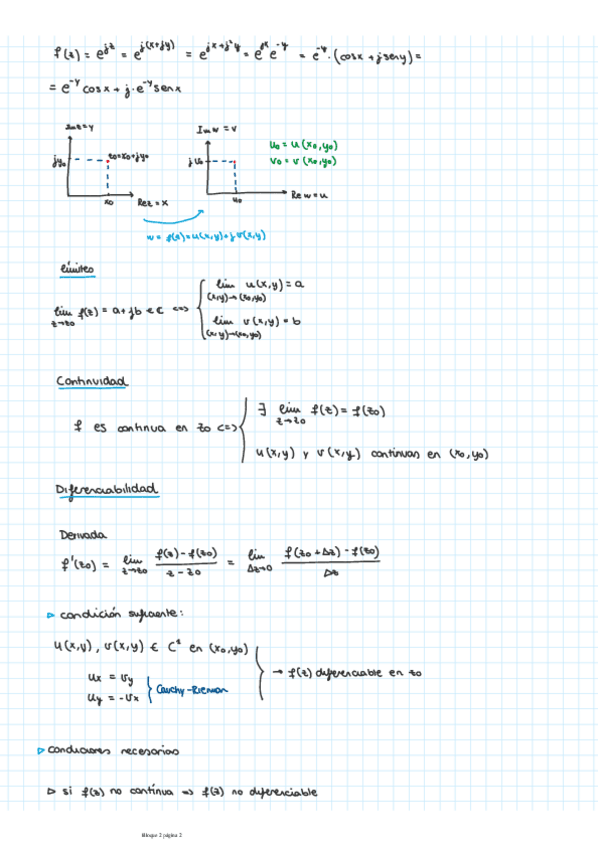 f(z) = e^{jz} = e^{j(x+jy)} = e^{jx+j²y} = e^{jx} e^{-y} = e^{-y}·(cosx + jseny) =
= e^{-y} cosx + j·e^{-y} senx
Imz = y
Imw = v
u₀ = u(x₀,y₀)
v₀ = v(x₀,y₀)
jy₀
z₀=x₀+jy₀
jv₀
x₀
Rez = x
u₀
Rew = u
w = f(z) = u(x,y)+j v(x,y)
límites
lim f(z) = a+jb ∈ C <=> { lim u(x,y) = a
z→z₀
(x,y)→(x₀,y₀)
lim v(x,y) = b
(x,y)→(x₀,y₀)
Continuidad
f es continua en z₀ <=> { ∃ lim f(z) = f(z₀)
z→z₀
u(x,y) y v(x,y) continuas en (x₀,y₀)
Diferenciabilidad
Derivada
f'(z₀) = lim_{z→z₀} (f(z)-f(z₀))/(z-z₀) = lim_{Δz→0} (f(z₀+Δz)-f(z₀))/Δz
▷ condición suficiente:
u(x,y), v(x,y) ∈ C¹ en (x₀,y₀)
ux = vy
uy = -vx } Cauchy-Rieman
→ f(z) diferenciable en z₀
▷ condiciones necesarias
▷ si f(z) no continua => f(z) no diferenciable
Bloque 2 página 2